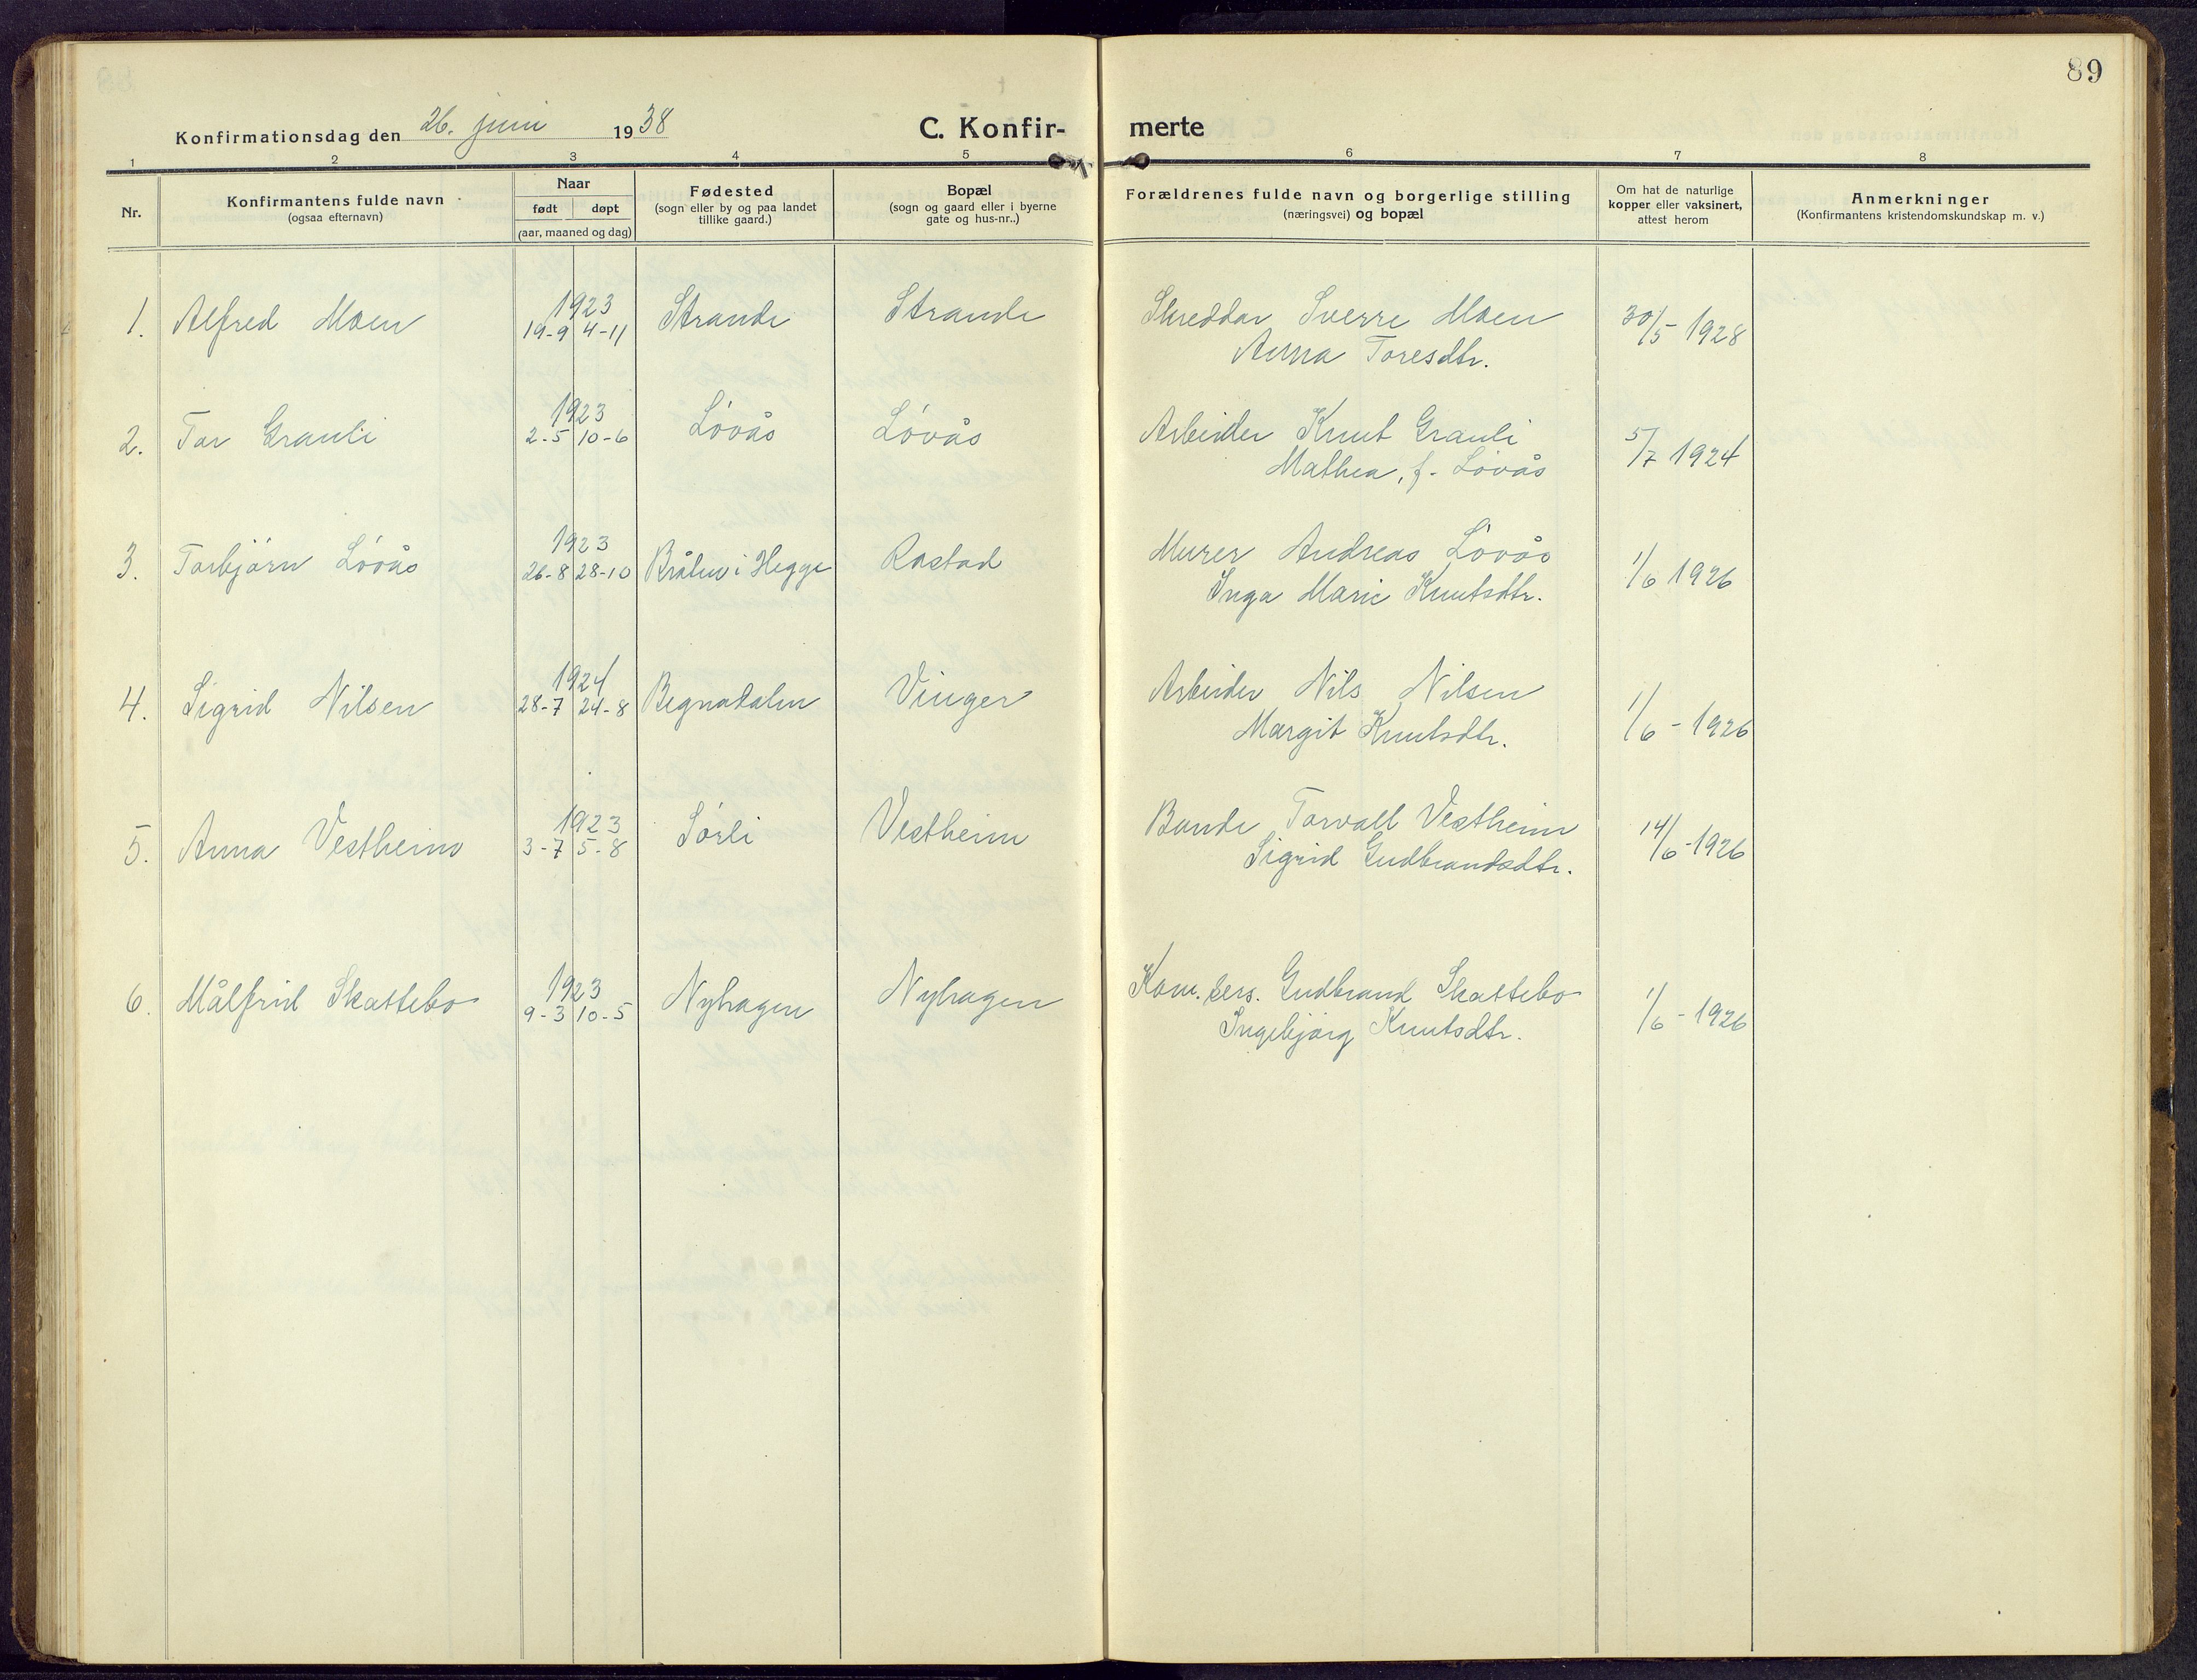 89
Konfirmationsdag den 26. juni 1938
C. Konfir-
merte
1 2 3 4 5 6 7 8
Nr.
Konfirmantens fulde navn
(ogsaa efternavn)
Naar
født døpt
(aar, maaned og dag)
Fødested
(sogn eller by og paa landet
tillike gaard.)
Bopæl
(sogn og gaard eller i byerne
gate og hus-nr..)
Forældrenes fulde navn og borgerlige stilling
(næringsvei) og bopæl
Om hat de naturlige
kopper eller vaksinert,
attest herom
Anmerkninger
(Konfirmantens kristendomskundskap m. v.)
1923
1. Alfred Moen 19-9 4-11 Strande Strande Skreddar Sverre Moen 30/5 1928
Anna Toresdtr.
1923
2. Tor Grauli 2-5 10-6 Lóvås Lóvås Arbeider Knut Grauli 5/7 1924
Mathea, f. Lóvås
1923
3. Torbjórn Lóvås 26-8 28-10 Bråten i Hegge Rastad Murer Andreas Lóvås 1/6 1926
Inga Marie Knutsdtr.
1924
4. Sigrid Nilsen 28-7 24-8 Begnadalen Vinger Arbeider Nils Nilsen 1/6 - 1926
Margit Knutsdtr.
1923
5. Anna Vestheim 3-7 5-8 Sórli Vestheim Bonde Torvall Vestheim 14/6-1926
Sigrid Gudbrandsdtr.
1923
6. Målfrid Skattebo 9-3 10-5 Nyhagen Nyhagen Kom. Gudbrand Skattebo 1/6 - 1926
Ingebjórg Knutsdtr.